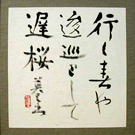 行く春や
逡巡として
遅桜